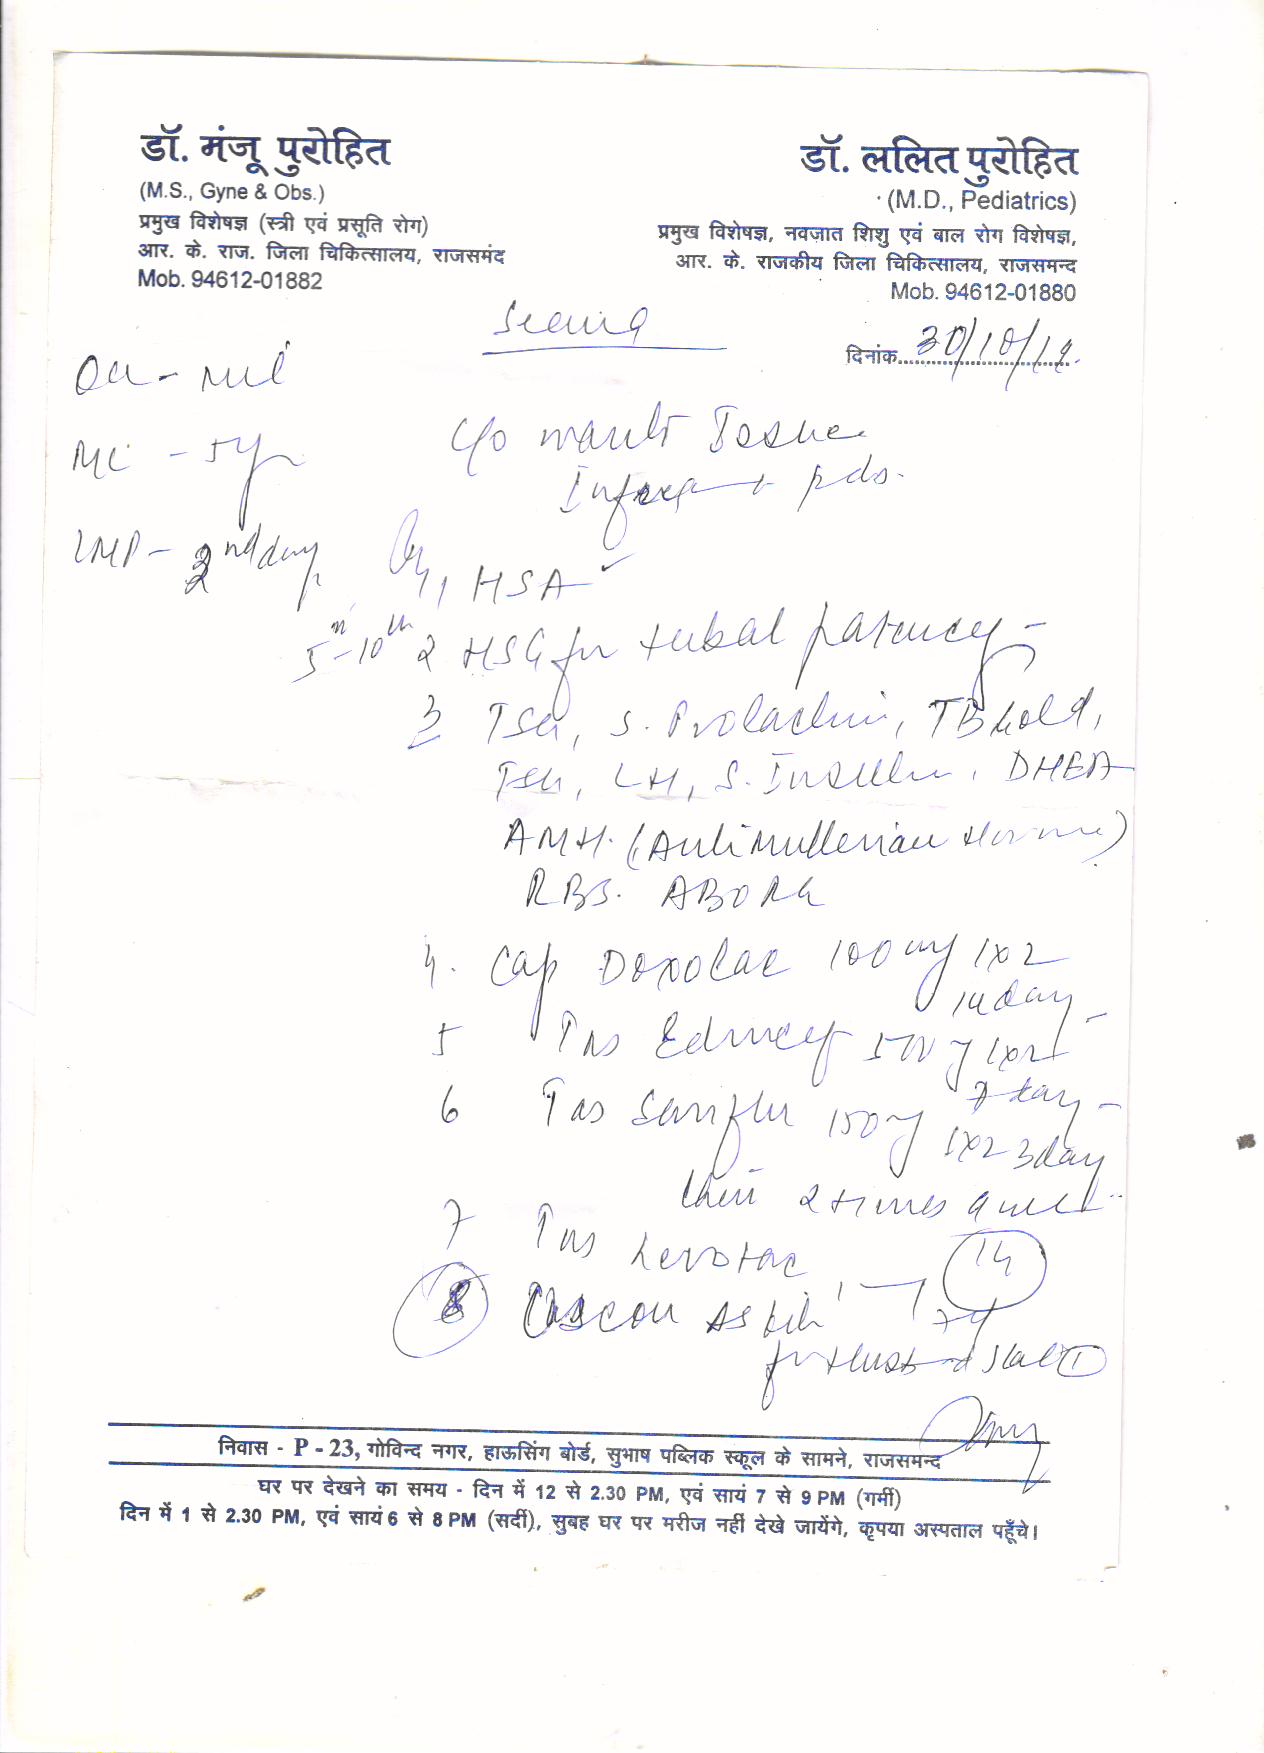 डॉ. मंजू पुरोहित
(M.S., Gyne & Obs.)
प्रमुख विशेषज्ञ (स्त्री एवं प्रसूति रोग)
आर. के. राज. जिला चिकित्सालय, राजसमंद
Mob. 94612-01882
डॉ. ललित पुरोहित
(M.D., Pediatrics)
प्रमुख विशेषज्ञ, नवजात शिशु एवं बाल रोग विशेषज्ञ,
आर. के. राजकीय जिला चिकित्सालय, राजसमन्द
Mob. 94612-01880
दिनांक 30/10/
nil
c/o wants Issue
LMP - 2nd day
1 HSA
5th-10th 2 HSG for tubal patency
3 S. Prolactin, TB Gold,
LH, S. Insulin, DHEA
AMH. (Antimullerian Hormone)
RBS. ABORh
4. Cap Doxolac 100 mg 1x2
14 day
5 Tab 500 mg 1x2
7 day
6 Tab 150 mg 1x2 3 day
then 2 times a week
7 Tab
14
8 As Kit
for Husband
निवास - P - 23, गोविन्द नगर, हाऊसिंग बोर्ड, सुभाष पब्लिक स्कूल के सामने, राजसमन्द
घर पर देखने का समय - दिन में 12 से 2.30 PM, एवं सायं 7 से 9 PM (गर्मी)
दिन में 1 से 2.30 PM, एवं सायं 6 से 8 PM (सर्दी), सुबह घर पर मरीज नहीं देखे जायेंगे, कृपया अस्पताल पहुँचे।